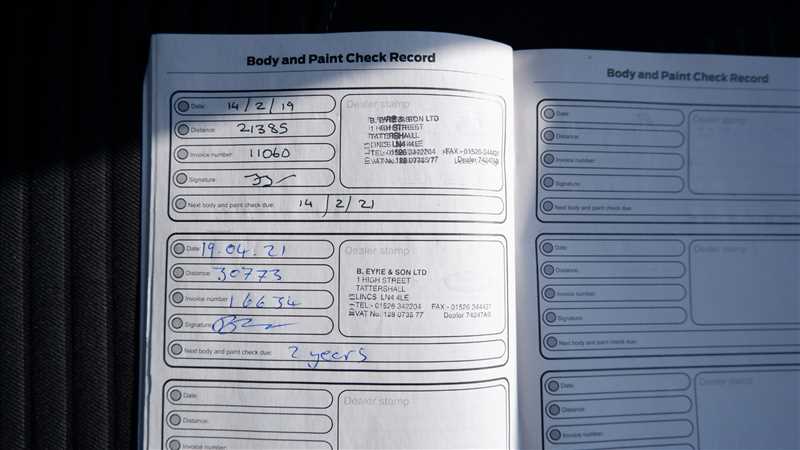 Body and Paint Check Record
Date: 14/2/19
Distance: 21385
Invoice number: 11060
Signature:
Next body and paint check due: 14/2/21
Dealer stamp
B. EYRE & SON LTD
1 HIGH STREET
TATTERSHALL
LINCS LN4 4LE
TEL - 01526 342204 FAX - 01526 344431
VAT No. 128 0735 77 Dealer 74247A5
Date: 19.04.21
Distance: 30773
Invoice number: 16634
Signature:
Next body and paint check due: 2 years
Dealer stamp
B. EYRE & SON LTD
1 HIGH STREET
TATTERSHALL
LINCS LN4 4LE
TEL - 01526 342204 FAX - 01526 344431
VAT No. 128 0735 77 Dealer 74247A5
Date:
Distance:
Invoice number:
Dealer stamp
Body and Paint Check Record
Date:
Distance:
Invoice number:
Signature:
Next body and paint check due:
Dealer stamp
Date:
Distance:
Invoice number:
Signature:
Next body and paint check due:
Dealer stamp
Date:
Distance:
Invoice number:
Dealer stamp